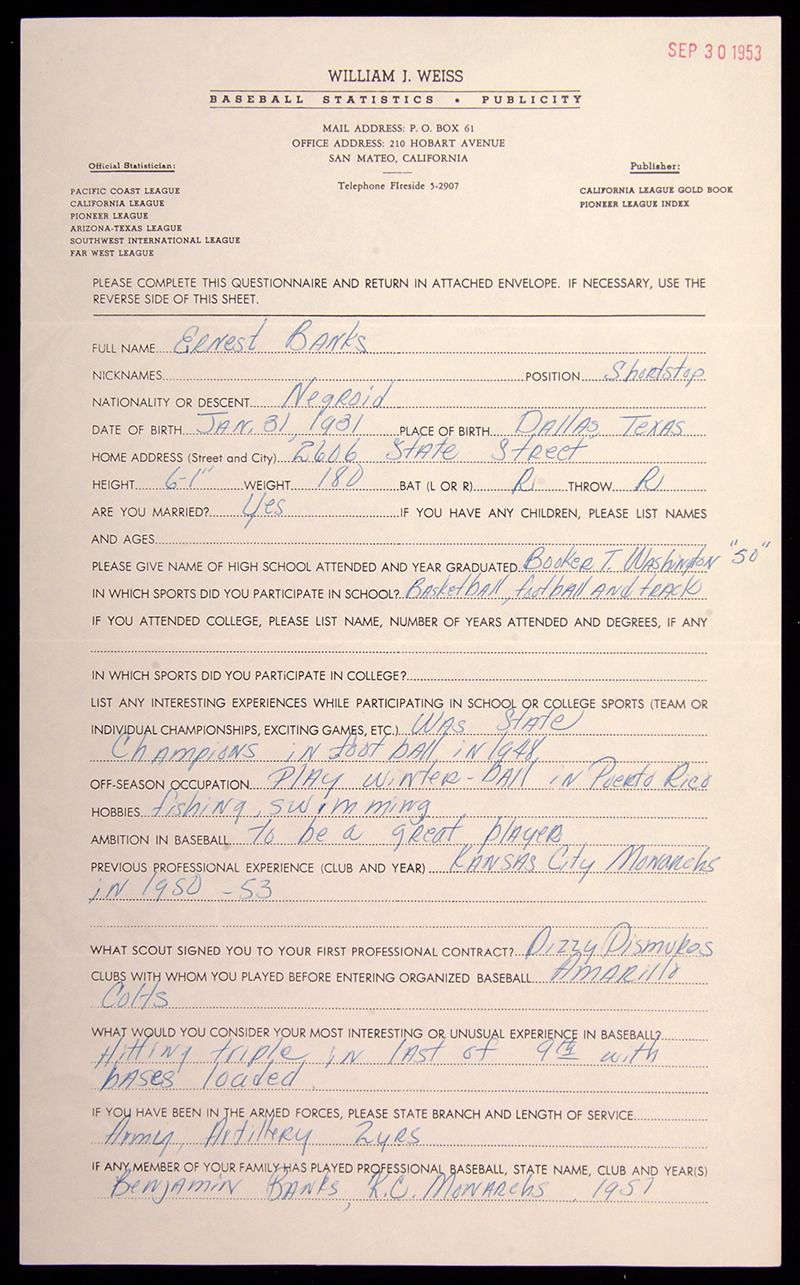 SEP 30 1953
WILLIAM J. WEISS
BASEBALL STATISTICS • PUBLICITY
MAIL ADDRESS: P. O. BOX 61
OFFICE ADDRESS: 210 HOBART AVENUE
SAN MATEO, CALIFORNIA
Telephone FIreside 5-2907
Official Statistician:
PACIFIC COAST LEAGUE
CALIFORNIA LEAGUE
PIONEER LEAGUE
ARIZONA-TEXAS LEAGUE
SOUTHWEST INTERNATIONAL LEAGUE
FAR WEST LEAGUE
Publisher:
CALIFORNIA LEAGUE GOLD BOOK
PIONEER LEAGUE INDEX
PLEASE COMPLETE THIS QUESTIONNAIRE AND RETURN IN ATTACHED ENVELOPE. IF NECESSARY, USE THE
REVERSE SIDE OF THIS SHEET.
FULL NAME Ernest Banks
NICKNAMES POSITION Shortstop
NATIONALITY OR DESCENT Negroid
DATE OF BIRTH JAN. 31, 1931 PLACE OF BIRTH Dallas, Texas
HOME ADDRESS (Street and City) 2606 State Street
HEIGHT 6-1" WEIGHT 180 BAT (L OR R) R THROW R
ARE YOU MARRIED? Yes IF YOU HAVE ANY CHILDREN, PLEASE LIST NAMES
AND AGES
PLEASE GIVE NAME OF HIGH SCHOOL ATTENDED AND YEAR GRADUATED Booker T. Washington "50"
IN WHICH SPORTS DID YOU PARTICIPATE IN SCHOOL? Basketball, football and track
IF YOU ATTENDED COLLEGE, PLEASE LIST NAME, NUMBER OF YEARS ATTENDED AND DEGREES, IF ANY
IN WHICH SPORTS DID YOU PARTICIPATE IN COLLEGE?
LIST ANY INTERESTING EXPERIENCES WHILE PARTICIPATING IN SCHOOL OR COLLEGE SPORTS (TEAM OR
INDIVIDUAL CHAMPIONSHIPS, EXCITING GAMES, ETC.) Was State
Champions in foot ball in 1948
OFF-SEASON OCCUPATION Play winter-ball in Puerto Rico
HOBBIES fishing, swimming
AMBITION IN BASEBALL to be a great player
PREVIOUS PROFESSIONAL EXPERIENCE (CLUB AND YEAR) Kansas City Monarchs
in 1950 - 53
WHAT SCOUT SIGNED YOU TO YOUR FIRST PROFESSIONAL CONTRACT? Dizzy Dismukes
CLUBS WITH WHOM YOU PLAYED BEFORE ENTERING ORGANIZED BASEBALL Amarillo
Colts
WHAT WOULD YOU CONSIDER YOUR MOST INTERESTING OR UNUSUAL EXPERIENCE IN BASEBALL?
Hitting triple in last of 9th with
bases loaded
IF YOU HAVE BEEN IN THE ARMED FORCES, PLEASE STATE BRANCH AND LENGTH OF SERVICE
Army, Artillery 2yrs
IF ANY MEMBER OF YOUR FAMILY HAS PLAYED PROFESSIONAL BASEBALL, STATE NAME, CLUB AND YEAR(S)
Benjamin Banks, K.C. Monarchs,